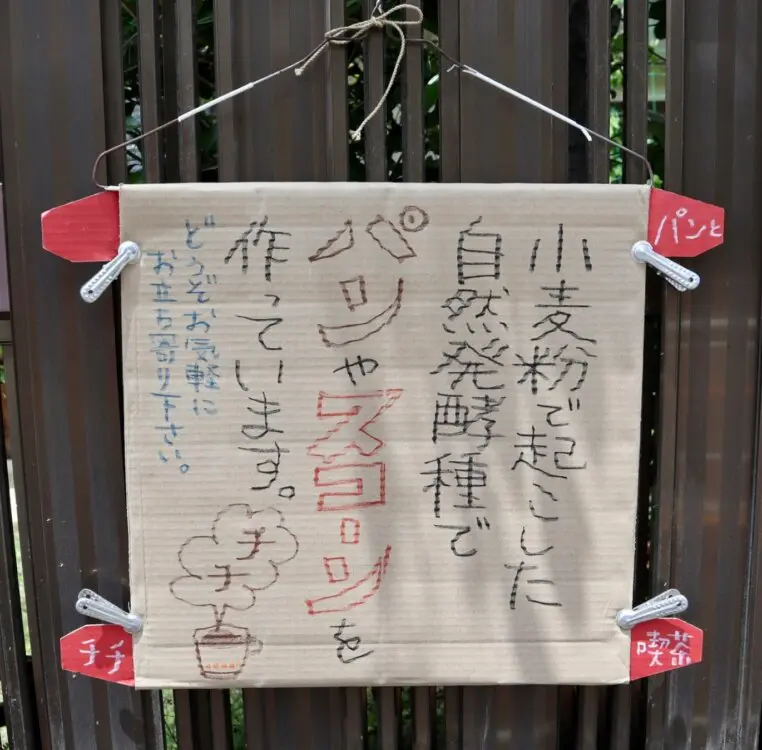 小麦粉で起こした
自然発酵種で
パンやスコーンを
作っています。
どうぞお気軽に
お立ち寄り下さい。
チチ
パンと
喫茶
チチ